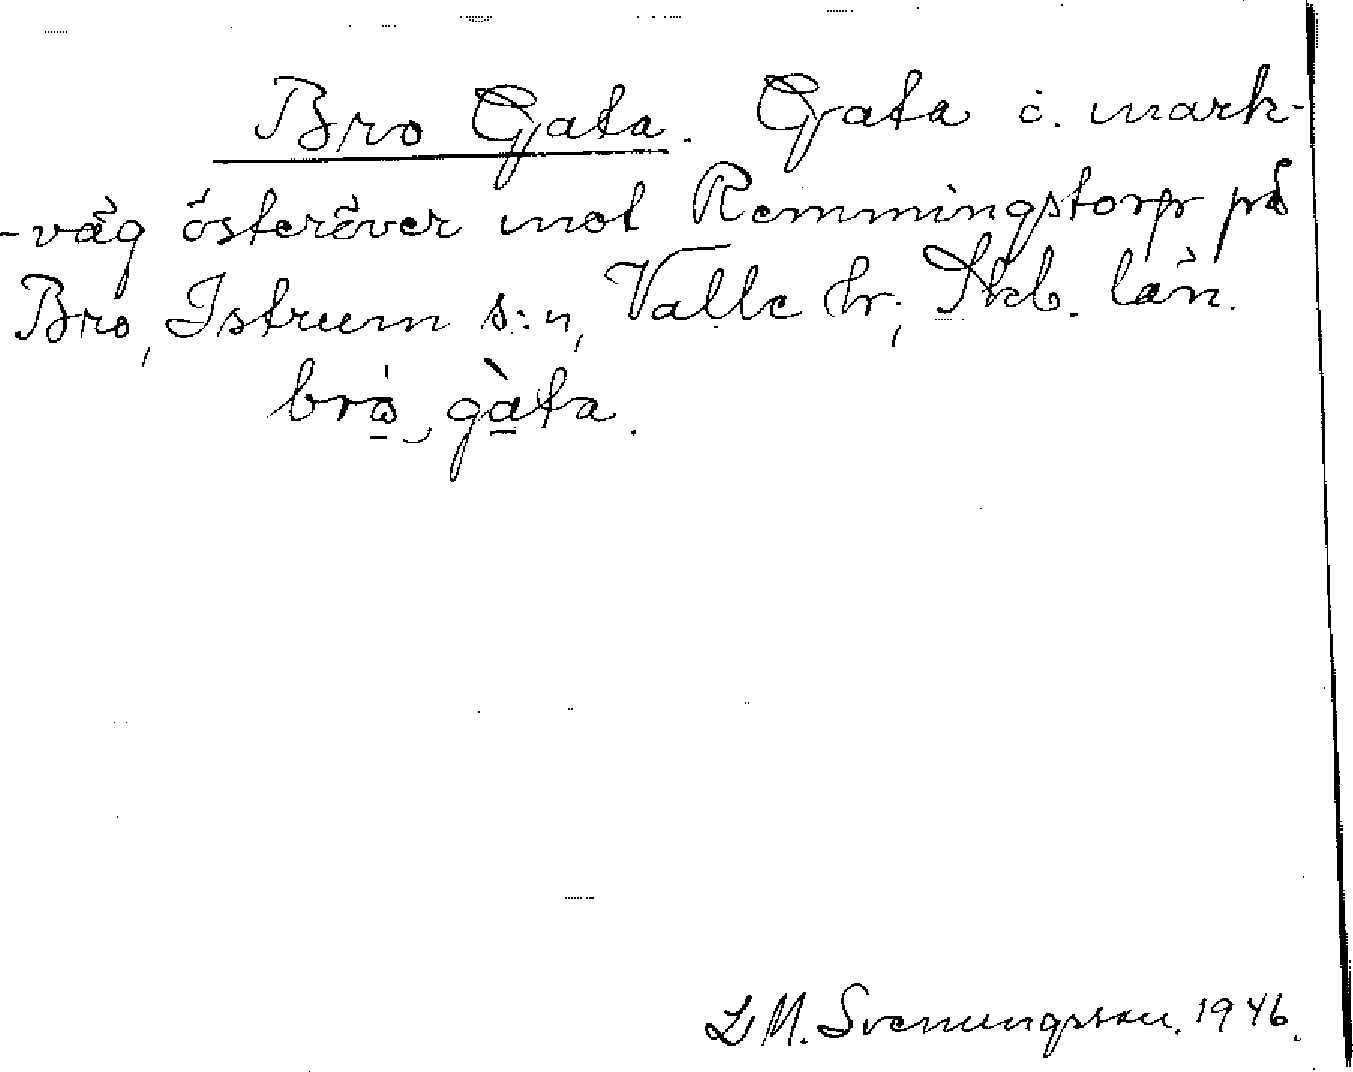 Bro Gata. Gata o. mark-
-väg österöver mot Remmingstorp på
Bro, Istrum s:n, Valle hr; Skb. län.
brò gàta.
L M. Svenungsson. 1946.